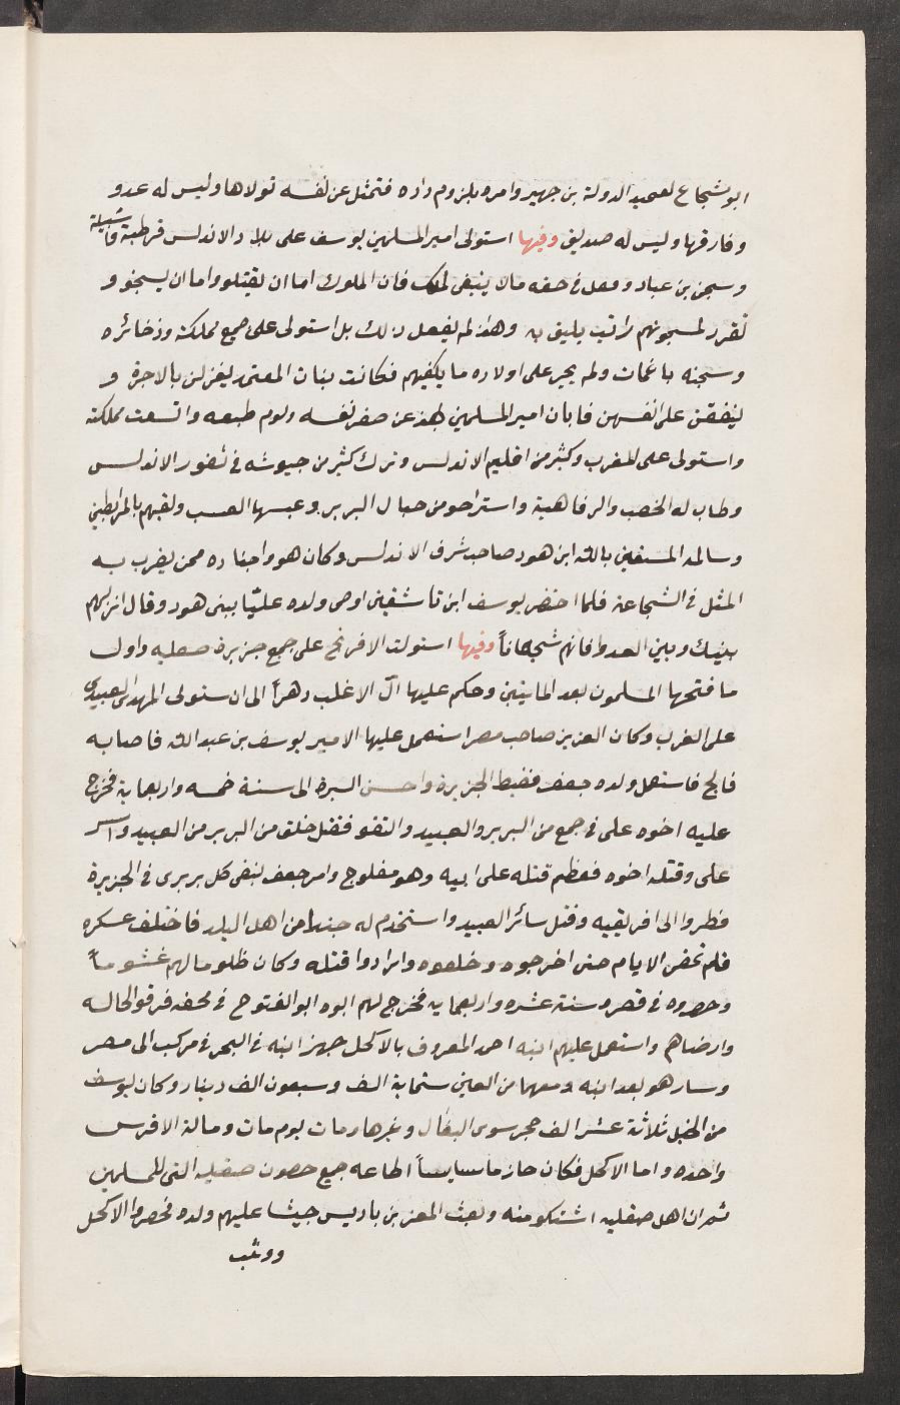 ابو شجاع لعميد الدولة بن جهير وامره بلزوم داره فتمثل عن نفسه تولاها وليس له عدو
وفارقها وليس له صديق وفيها استولى امير المسلمين يوسف على بلاد الاندلس قرطبة واشبيلة
وسجن بن عباد وفعل في حقه مالا ينبغي لملك فان الملوك اما ان يقتلو واما ان يسجنو و
تقرر لمسجونهم راتب يليق به وهذا لم يفعل ذلك بل استولى على جميع مملكته وذخائره
وسجنه باغمات ولم يجر على اولاده ما يكفيهم فكانت بنات المعتمد يغزلن بالاجرة و
ينفقن على انفسهن فابان امير المسلمين بهذ عن صغر نفسه ولوم طبعه واتسعت مملكته
واستولى على المغرب وكثير من اقليم الاندلس وترك كثير من جيوشه في ثغور الاندلس
وطاب له الخصب والرفاهية واستراحو من جبال البربر وعيسها العسب ولقبهم بالمرابطين
وسالمه المستعين بالله ابن هود صاحب شرف الاندلس وكان هو واجناده ممن يضرب به
المثل في الشجاعة فلما احتضر يوسف ابن تاشفين اوصى ولده عليّا ببني هود وقال اتركهم
بينك وبين العدو فانهم شجعاناً وفيها استولت الافرنج على جميع جزيرة صقليه واول
ما فتحها المسلمون بعد المايتين وحكم عليها ال الاغلب دهراً الى ان ستولى المهدي العبيدي
على الغرب وكان العزيز صاحب مصر استعمل عليها الامير يوسف بن عبد الله فاصابه
فالج فاستعمل ولده جعفر فضبط الجزيرة واحسن السيرة الى سنة خمسه واربعماية فخرج
عليه اخوه على في جمع من البربر والعبيد والتقو فقتل خلق من البربر من العبيد واسر
على وقتله اخوه فعظم قتله على ابيه وهو مفلوج وامر جعفر بنفى كل بربرى في الجزيرة
فطروا الى افريقيه وقتل سائر العبيد واستخدم له جندا من اهل البلد فاختلف عسكره
فلم تمض الايام حتى اخرجوه وخلعوه وارادوا قتله وكان ظلوما لهم غشوماً
وحصروه في قصره سنة عشره واربعمايه فخرج لهم ابوه ابو الفتوح في محفه فرقو الحاله
وارضاهم واستعمل عليهم ابنه احمد المعروف بالاكحل جهز ابنه في البحر في مركب الى مصر
وسار هو بعد ابنه ومعهما من العين ستماية الف وسبعون الف دينار وكان ليوسف
من الخيل ثلاثة عشر الف حجر سوى البغال وغيرها ومات يوم مات وماله الا فرس
واحده واما الاكحل فكان حازما سايساً اطاعه جميع حصون صقليه التى للمسلمين
ثم ان اهل صقليه اشتكو منه وبعث المعز بن باديس جيشا عليهم ولده فحصروا الاكحل
ووثب